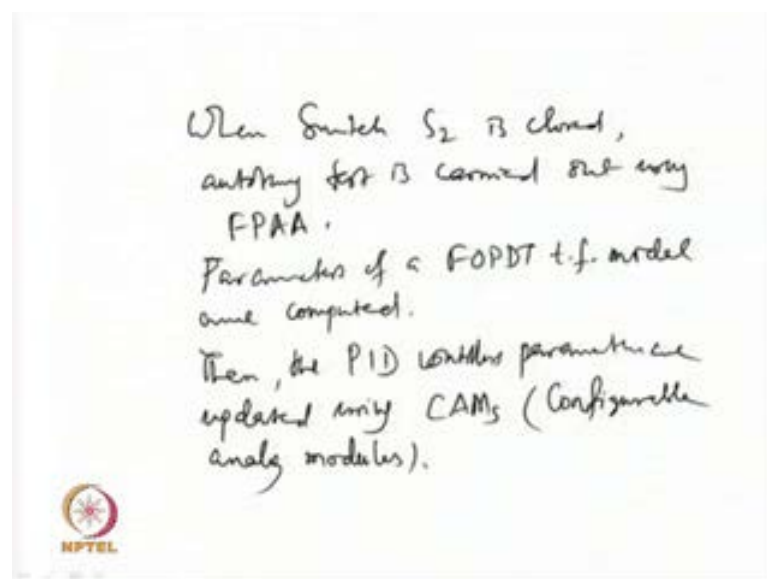 When Switch S2 is closed,
autotuning test is carried out using
FPAA.
Parameters of a FOPDT t.f. model
are computed.
Then, the PID controllers parameters are
updated using CAMs (Configurable
analog modules).
NPTEL